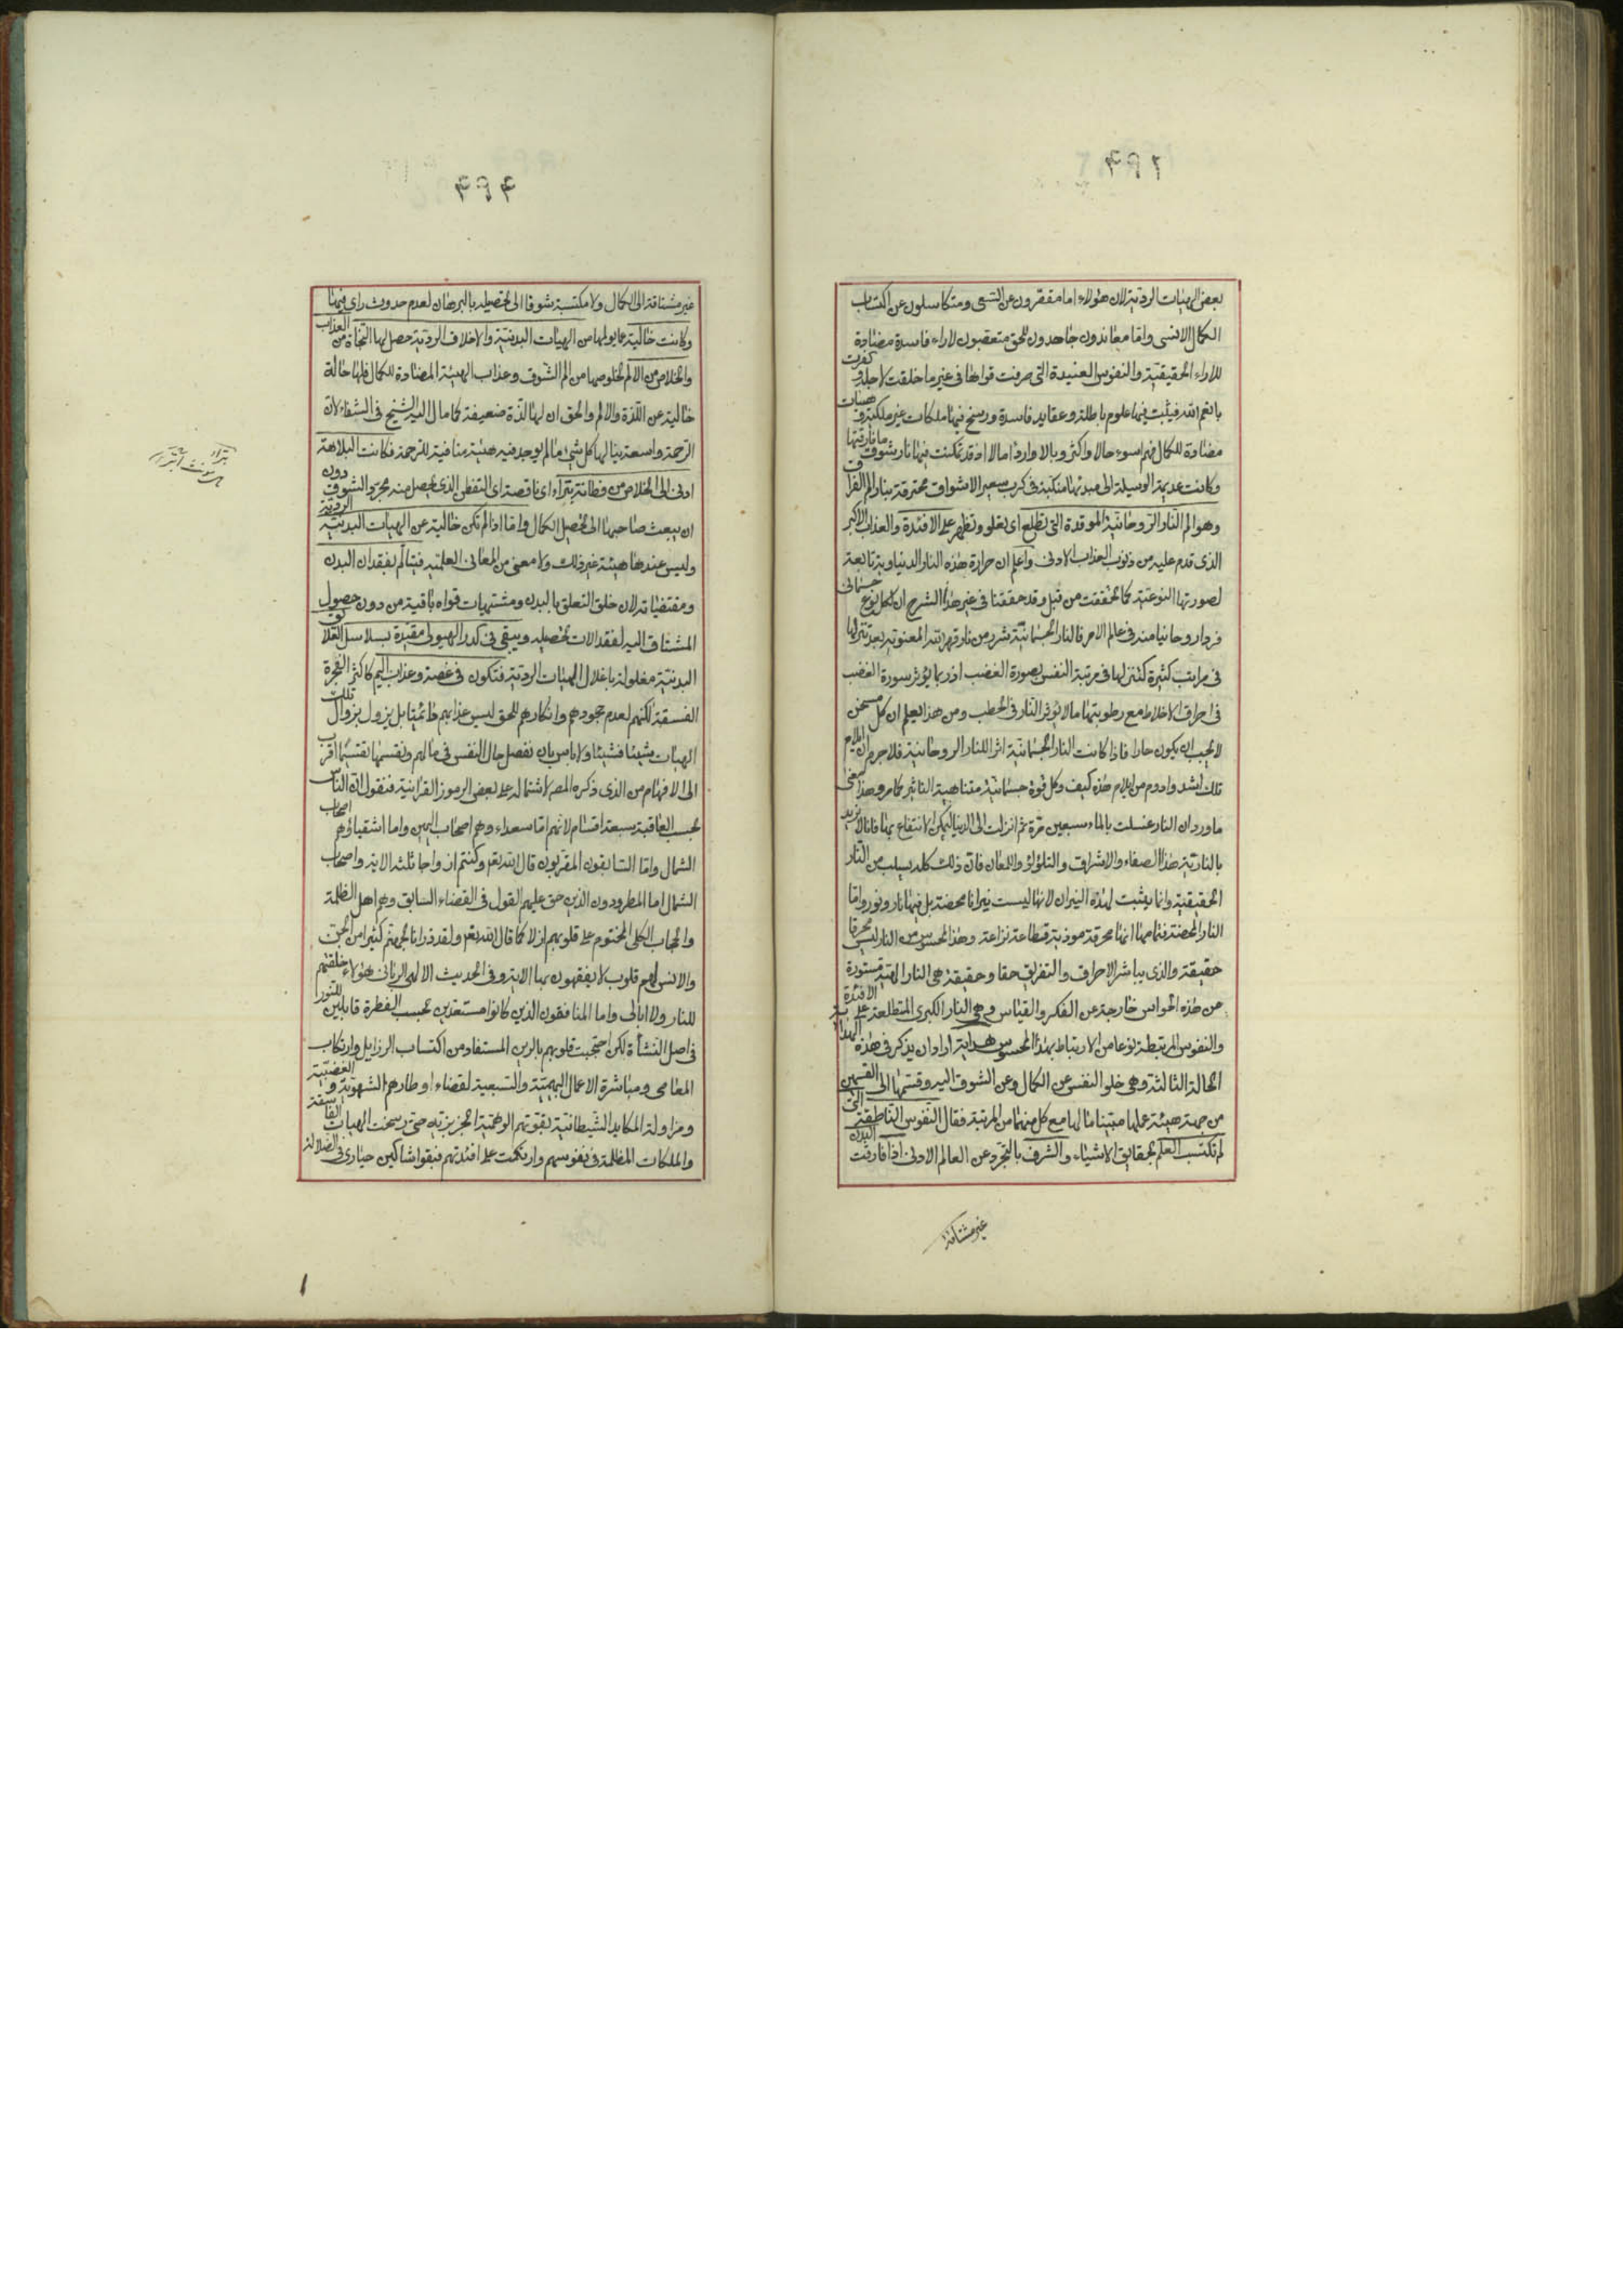 بعض الهيئات الردية لان هؤلاء اما مقصرون عن السعى ومتكاسلون عن اكتساب
الكمال الانسى واما معاندون جاحدون للحق متعصبون لاراء فاسدة مضادة
للاراء الحقيقية والنفوس العنيدة التى صرفت قواها فى غير ما خلقت لاجله وكفرت
بانعم الله فيثبت فيها علوم باطلة وعقايد فاسدة ورسخ فيها ملكات غير ملكية وهيئات
مضادة للكمال فهم اسوء حالا واكثر وبالا وارذا مالا اذ قد تمكنت فيها نار شوق ما فارقتها
وكانت عديمة الوسيلة الى مبدئها منكبة فى كرب سعير الاشواق محترقة بنار الم الفراق
وهو الم النار الروحانية الموقدة التى تطلع اى يعلو وتظهر على الافئدة والعذاب الاكبر
الذى قدم عليه من ذنوب العذاب الادنى واعلم ان حرارة هذه النار الدنياوية تابعة
لصورتها النوعية كما تحققت من قبل وقد حققنا فى غير هذا الشرح ان لكل نوع جسمانى
فردا روحانيا منه فى عالم الامر فالنار الجسمانية شرر من نار قهر الله المعنوية بعد تنزلها
فى مراتب كثيرة كتنزلها فى مرتبة النفس بصورة الغضب اذ ربما يؤثر سورة الغضب
فى احراق الاخلاط مع رطوبتها ما لا يؤثر النار فى الحطب ومن هذا يعلم ان كل مسخن
لا يجب ان يكون حارا فاذا كانت النار الجسمانية اثر اللنار الروحانية فلا جرم ان ايلام
تلك اشد وادوم من ايلام هذه كيف وكل قوة جسمانية متناهية التاثير كما مر وهذا معنى
ما ورد ان النار غسلت بالماء سبعين مرة ثم انزلت الى الدنيا ليمكن الانتفاع بها فانا لا نريد
بالنارية هذا الصفاء والاشراق والتلؤلؤ واللمعان فان ذلك كله يسلب من النار
الحقيقية وانما يثبت لهذه النيران لانها ليست نيرانا محضة بل فيها نار ونور واما
النار المحضة فشامها انها محرقة موذية قطاعة نزاعة وهذا المحسوس من النار ليس محرقا
حقيقة والذى يباشر الاحراق والتفريق حقا وحقيقة هى النار الهية مستورة
من هذه الحواس خارجة عن الفكر والقياس وهى النار الكبرى المتطلعة على الافئدة
والنفوس المرتبطة نوعا من الارتباط بهذا المحسوس هداية اراد ان يذكر فى هذه الهداية
الحالة الثالثة وهى خلو النفس عن الكمال وعن الشوق اليه وقسمها الى القسمين
من جهة هيئة عملها مبينا ما لها مع كل منهما من المرتبة فقال النفوس الناطقة التى
لم تكتسب العلم بحقايق الاشياء والشرف بالتجرد عن العالم الادنى اذا فارقت البدن
غير مشتاقة
غير مشتاقة الى الكمال ولا مكتسبة شوقا الى تحصيله بالبرهان لعدم حدوث راى فيها
وكانت خالية عما يولها من الهيئات البدنية والاخلاق الردية حصل لها النجاة من العذاب
والخلاص من الالم لخلوصها من الم الشوق وعذاب الهيئة المضادة للكمال فلها حالة
خالية عن اللذة والالم والحق ان لها لذة ضعيفة كما مال اليه الشيخ فى الشفاء لان
الرحمة واسعة ينالها كل شئ ما لم يوجد فيه هيئة منافية للرحمة فكانت البلاهة
ادنى الى الخلاص من فطانة بتراء اى ناقصة اى التفطن الذى يحصل منه مجرد الشوق دون
ان يبعث صاحبها الى تحصيل الكمال واما اذا لم تكن خالية عن الهيئات البدنية الردية
وليس عندها هيئة غير ذلك ولا معنى من المعانى العلمية فيتالم بفقدان البدن
ومقتضياته لان خلق التعلق بالبدن ومشتهيات قواه باقية من دون حصول
المشتاق اليه لفقد الات تحصيله ويبقى فى كدر الهيولى مقيدة بسلاسل العلايق
البدنية مغلولة باغلال الهيئات الردية فتكون فى غصة وعذاب اليم كاكثر الفجرة
الفسقة لكنهم لعدم جحودهم وانكارهم للحق ليس عذابهم دائما بل يزول بزوال تلك
الهيئات شيئا فشيئا ولا باس بان نفصل حال النفس فى مالهم ونقسمها تقسيما اقرب
الى الافهام من الذى ذكره المص لاشتماله على بعض الرموز القرانية فنقول ان الناس
بحسب العاقبة سبعة اقسام لانهم اما سعداء وهم اصحاب اليمين واما اشقياؤهم اصحاب
الشمال واما السابقون المقربون قال الله تعالى وكنتم ازواجا ثلثة الاية واصحاب
الشمال اما المطرودون الذين حق عليهم القول فى القضاء السابق وهم اهل الظلمة
والحجاب الكلى المختوم على قلوبهم ازلا كما قال الله تعالى ولقد ذرانا لجهنم كثيرا من الجن
والانس لهم قلوب لا يفقهون بها الاية وفى الحديث الالهى الربانى هؤلاء خلقتهم
للنار ولا ابالى واما المنافقون الذين كانوا مستعدين بحسب الفطرة قابلين للنور
فى اصل النشأة لكن احتجبت قلوبهم بالرين المستفاد من اكتساب الرزايل وارتكاب
المعاصى ومباشرة الاعمال البهيمية والسبعية لقضاء اوطارهم الشهوية والغضبية
ومزاولة المكايد الشيطانية بقوتهم الوهمية الجزيزية حتى رسخت الهيات الفاسقة
والملكات المظلمة فى نفوسهم وارتكمت على افئدتهم فبقوا شاكين حيارى فى الضلالة